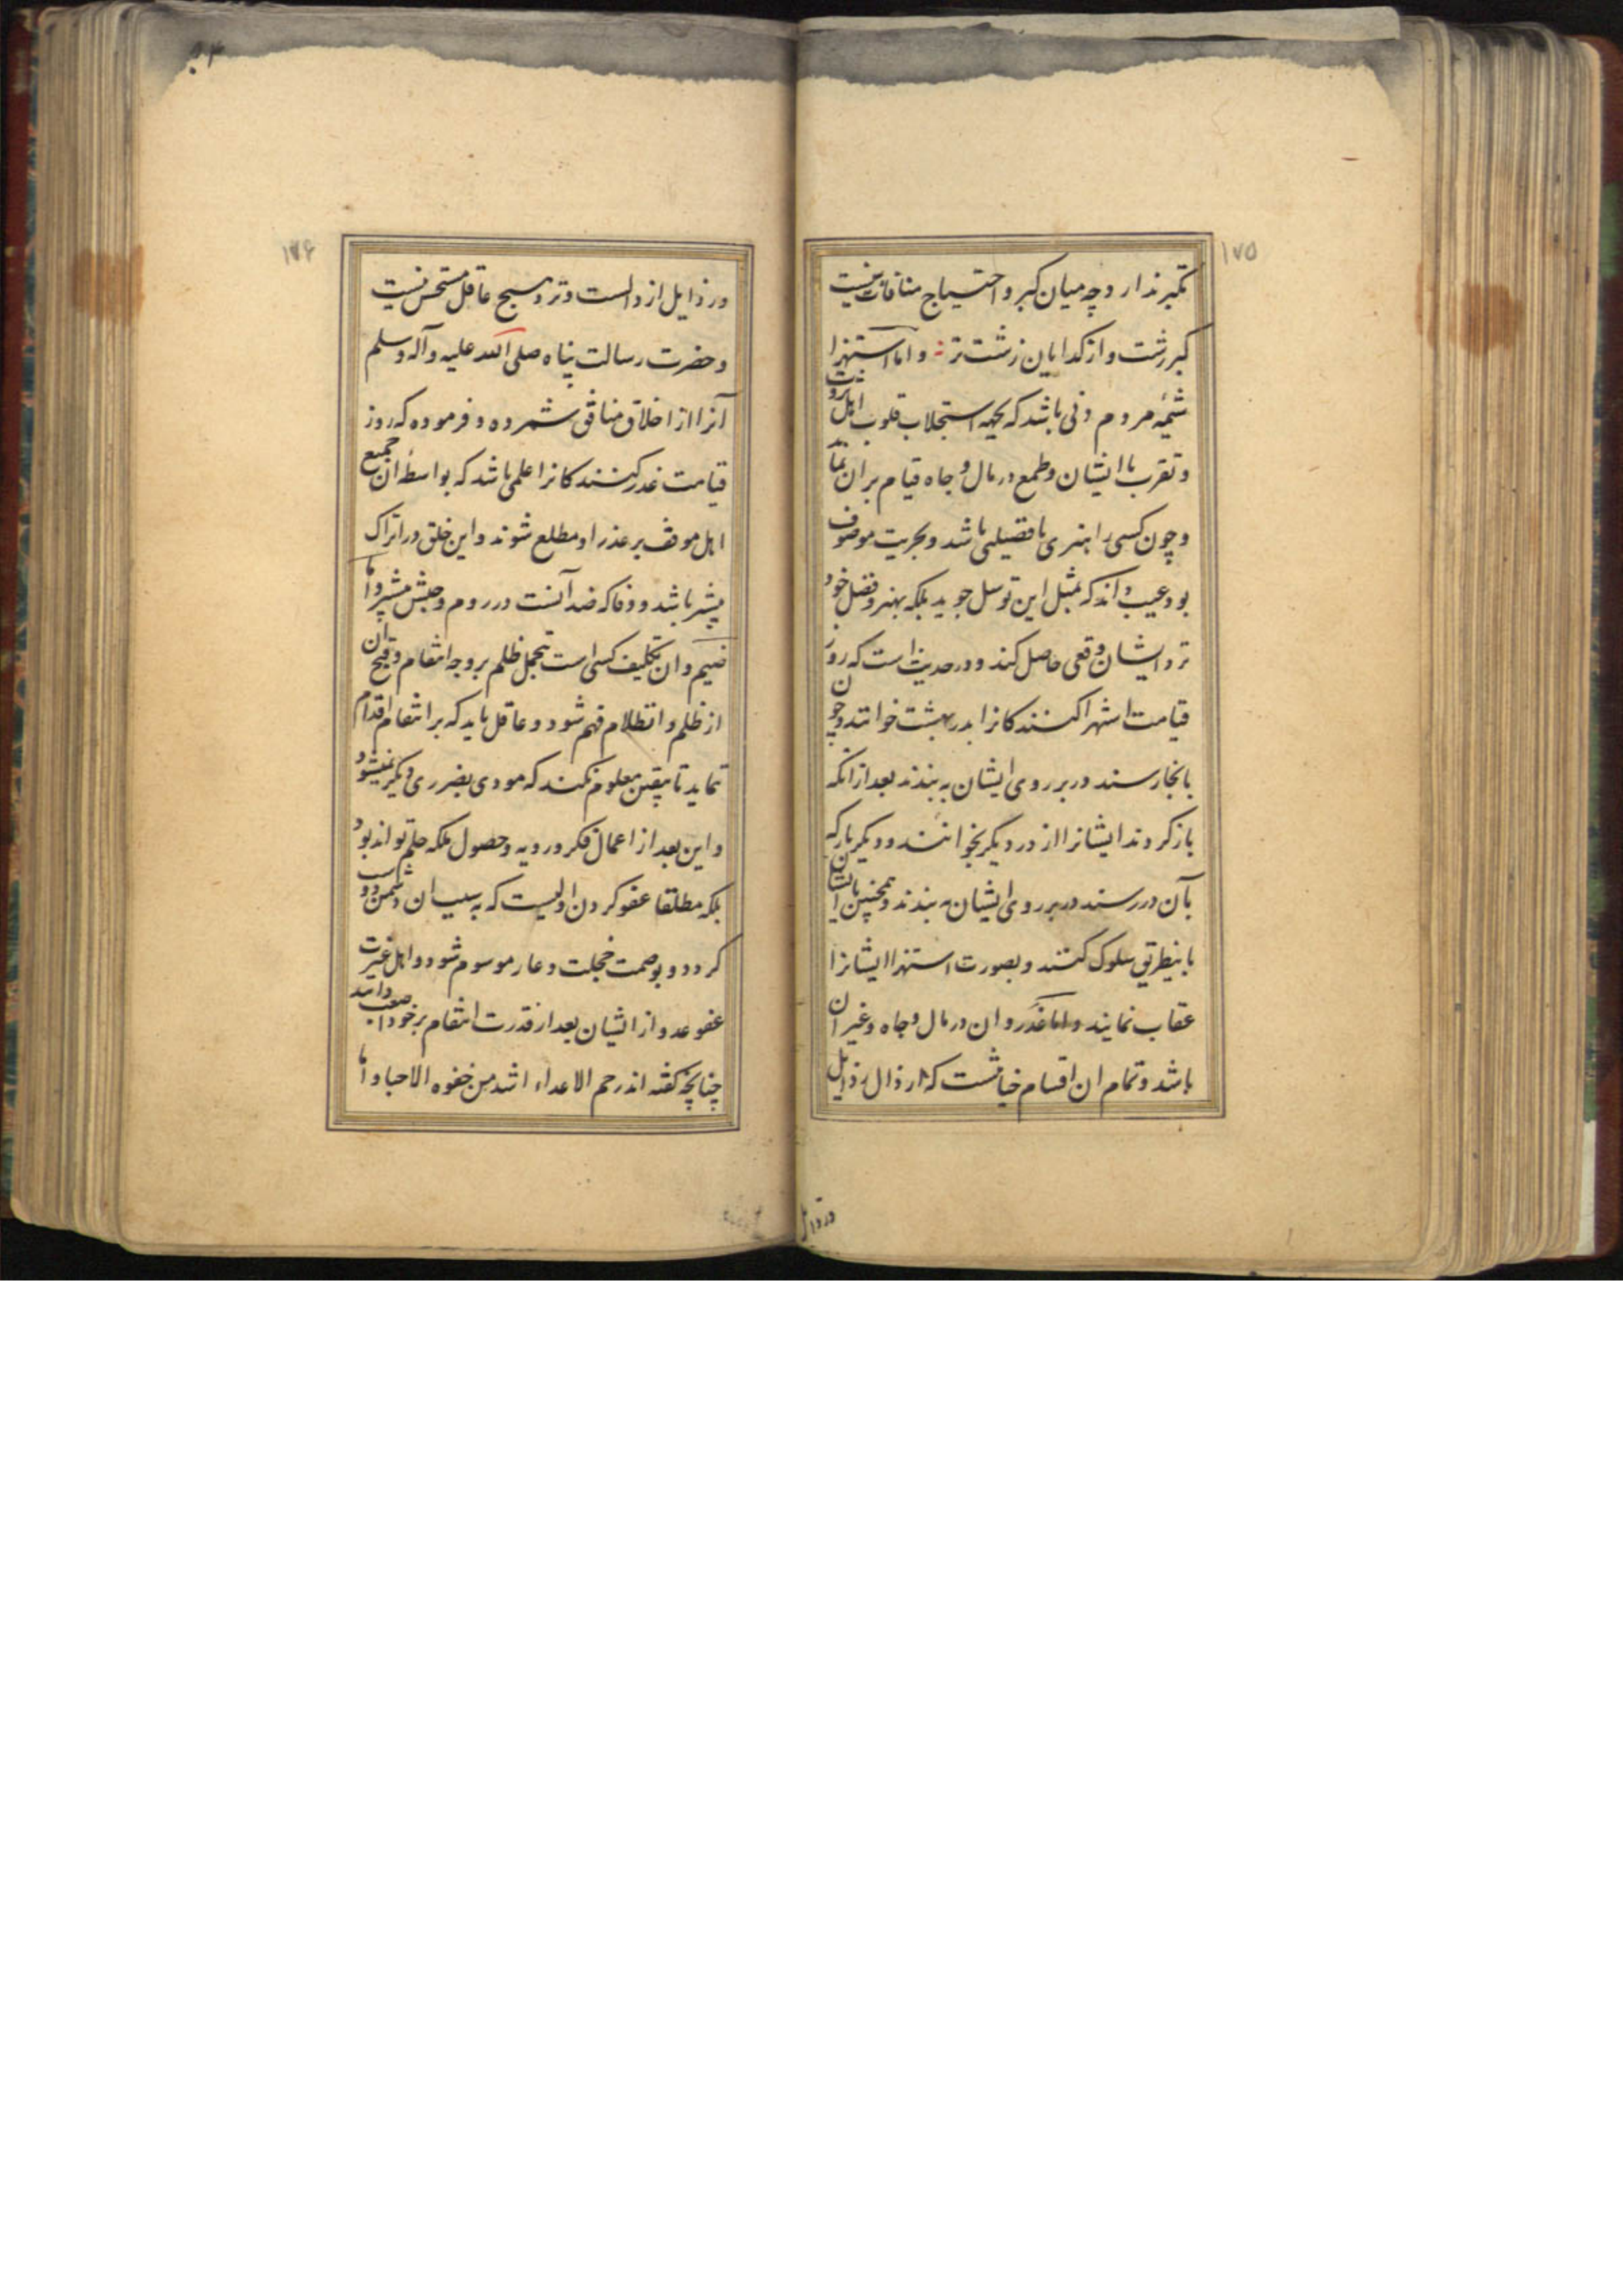 ۱۷۵
تکبر ندارد چه میان کبر و احتیاج منافات نیست
کبر زشت و از کدایان زشت تر و اما استهزا
شیمه مردم دنی باشد که بجهه استجلاب قلوب اهل ثروت
و تقرب با ایشان و طمع در مال و جاه قیام بر ان نماید
و چون کسی را هنری با فضیلتی باشد و بحریت موصوف
بود عیب داند که بمثل این توسل جوید بلکه بهنر و فضل خود
نزد ایشان وقعی حاصل کند و در حدیث است که روز
قیامت استهزا کنند کانرا بدر بهشت خوانند و چون
بانجا رسند در بر روی ایشان به بندند بعد از انکه
باز کردند ایشانرا از در دیگر بخوانند و دیگر بار که
بآن در رسند در بر روی ایشان به بندند و همچنین با ایشان
باینطریق سلوک کنند و بصورت استهزا ایشانرا
عقاب نمایند و اما غدر و ان در مال و جاه و غیر ان
باشد و تمام ان اقسام خیانتست که ارذال رذایل
در ذایل
۱۷۶
ورذایل ازدالست و نزد هیچ عاقل مستحسن نیست
و حضرت رسالت پناه صلی الله علیه و آله وسلم
آنرا از اخلاق منافق شمرده و فرموده که روز
قیامت غدر کنند کانرا علمی باشد که بواسطه ان جمیع
اهل موقف بر عذر او مطلع شوند و این خلق در اتراک
بیشتر باشد و وفا که ضد آنست در روم و حبش بیشتر و اما
ضیم و ان تکلیف کسی است بتحمل ظلم بر وجه انتقام و قبح ان
از ظلم و انظلام فهم شود و عاقل باید که بر انتقام اقدام
ننماید تا بیقین معلوم نکند که مودی بضرری دیگر نمیشود
و این بعد از اعمال فکر و رویه و حصول ملکه حلم تواند بود
بلکه مطلقا عفو کردن اولیست که به سبب ان دشمن دوست
کردد و بوصمت خجلت و عار موسوم شود و اهل غیرت
عفو عدو از ایشان بعد از قدرت انتقام بر خود صعب دانند
چنانچه کفته اند رحم الاعداء اشد من جفوه الاحبا و اما